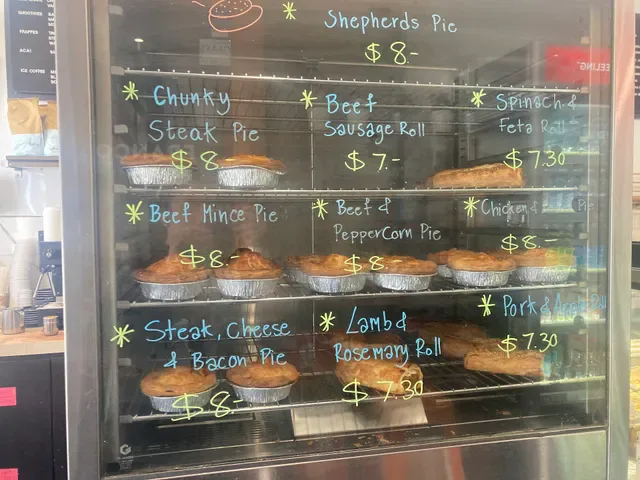 SMOOTHIES
FRAPPES
ACAI
ICE COFFEE
Shepherds Pie
$8.-
Chunky
Steak Pie
$8
Beef
Sausage Roll
$7.-
Spinach &
Feta Roll
$7.30
Beef Mince Pie
$8.-
Beef &
PepperCorn Pie
$8.-
Chicken & Pie
$8.-
Steak, Cheese
& Bacon Pie
$8.-
Lamb &
Rosemary Roll
$7.30
Pork & Apple Roll
$7.30